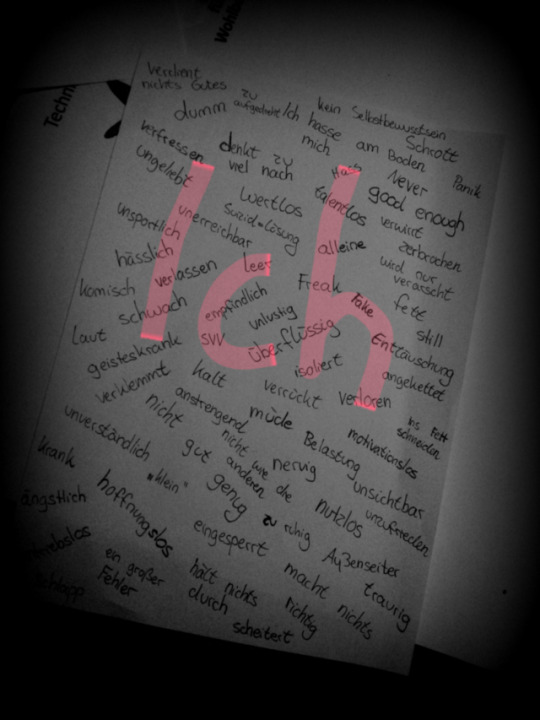 Wohlbe
Techni
verdient
nichts Gutes
zu
aufgedreht
kein Selbstbewusstsein
dumm
Ich hasse
mich
am Boden
Schrott
Panik
verfressen
denkt zu
viel nach
Never
good enough
ungeliebt
wertlos
talentlos
verwirrt
zerbrochen
Suizid=Lösung
unsportlich
unerreichbar
alleine
wird nur
verarscht
hässlich
verlassen
leer
Freak
Fake
fett
komisch
schwach
empfindlich
unlustig
still
laut
SVV
überflüssig
Enttäuschung
geisteskrank
isoliert
angekettet
verklemmt
kalt
verrückt
verloren
ins Fett
schneiden
nicht
anstrengend
müde
motivationslos
unverständlich
gut
nicht wie die
anderen
Belastung
nervig
unsichtbar
krank
"klein"
genug
nutzlos
unzufrieden
ängstlich
hoffnungslos
zu ruhig
eingesperrt
Außenseiter
ein großer
Fehler
hält nichts
durch
macht nichts
richtig
traurig
schlapp
scheitert
Ich